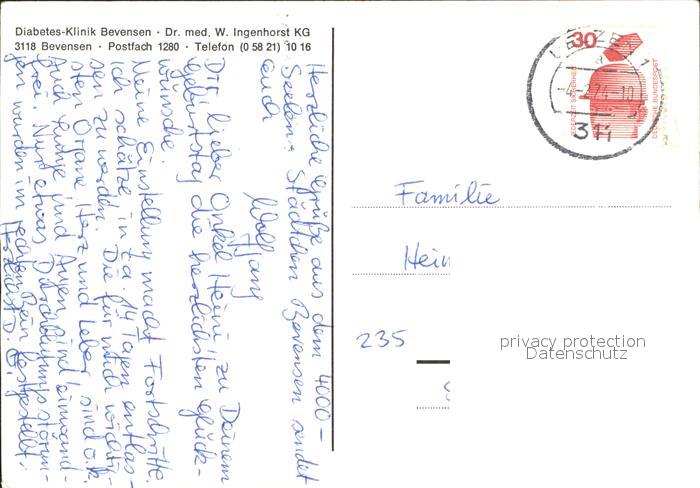 Diabetes-Klinik Bevensen · Dr. med. W. Ingenhorst KG
3118 Bevensen · Postfach 1280 · Telefon (0 58 21) 10 16
Herzliche Grüße aus dem 4000-
Seelen-Städtchen Bevensen sendet
euch
Wolfgang
Dir, lieber Onkel Heini zu Deinem
Geburtstag die herzlichsten Glück-
wünsche.
Meine Einstellung macht Fortschritte.
Ich schätze in ca. 14 Tagen entlas-
sen zu werden. Die für mich wichtig-
sten Organe Herz und Leber sind o.k.
Auch Lunge und Augen sind einwand-
frei. Nur etwas Durchblutungsstörun-
gen wurden im rechten Bein festgestellt.
Herzlichst D.
30
DEUTSCHE BUNDESPOST
UELZEN 1
a
-4.-2.74-10
311
Familie
Hein
235
privacy protection
Datenschutz